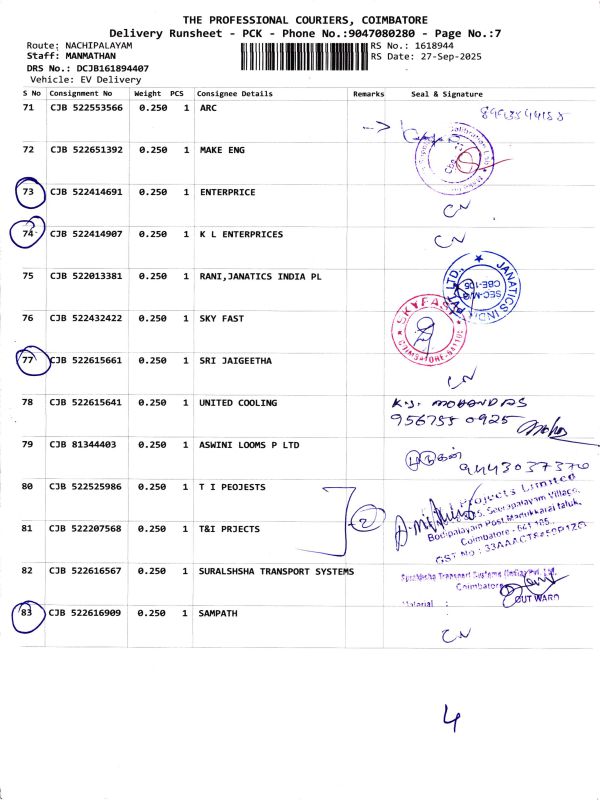 THE PROFESSIONAL COURIERS, COIMBATORE
Delivery Runsheet - PCK - Phone No.:9047080280 - Page No.:7
Route: NACHIPALAYAM RS No.: 1618944
Staff: MANMATHAN RS Date: 27-Sep-2025
DRS No.: DCJB161894407
Vehicle: EV Delivery
S No Consignment No Weight PCS Consignee Details Remarks Seal & Signature
71 CJB 522553566 0.250 1 ARC
72 CJB 522651392 0.250 1 MAKE ENG
73 CJB 522414691 0.250 1 ENTERPRICE CN
74 CJB 522414907 0.250 1 K L ENTERPRICES CN
75 CJB 522013381 0.250 1 RANI,JANATICS INDIA PL
JANATICS INDIA PVT LTD.,
CBE-106
76 CJB 522432422 0.250 1 SKY FAST
SKYFAST
77 CJB 522615661 0.250 1 SRI JAIGEETHA CN
78 CJB 522615641 0.250 1 UNITED COOLING K.S. MOHANDAS
956755 0925
79 CJB 81344403 0.250 1 ASWINI LOOMS P LTD
9443037370
80 CJB 522525986 0.250 1 T I PEOJESTS
2
Projects Limited
Seerapalayam Village,
Bodipalayam Post, Madukkarai taluk,
81 CJB 522207568 0.250 1 T&I PRJECTS
Coimbatore - 641 105.
GST No :
82 CJB 522616567 0.250 1 SURALSHSHA TRANSPORT SYSTEMS
Transport Systems (India) Pvt. Ltd.
Coimbatore
Material : OUT WARD
83 CJB 522616909 0.250 1 SAMPATH CN
4